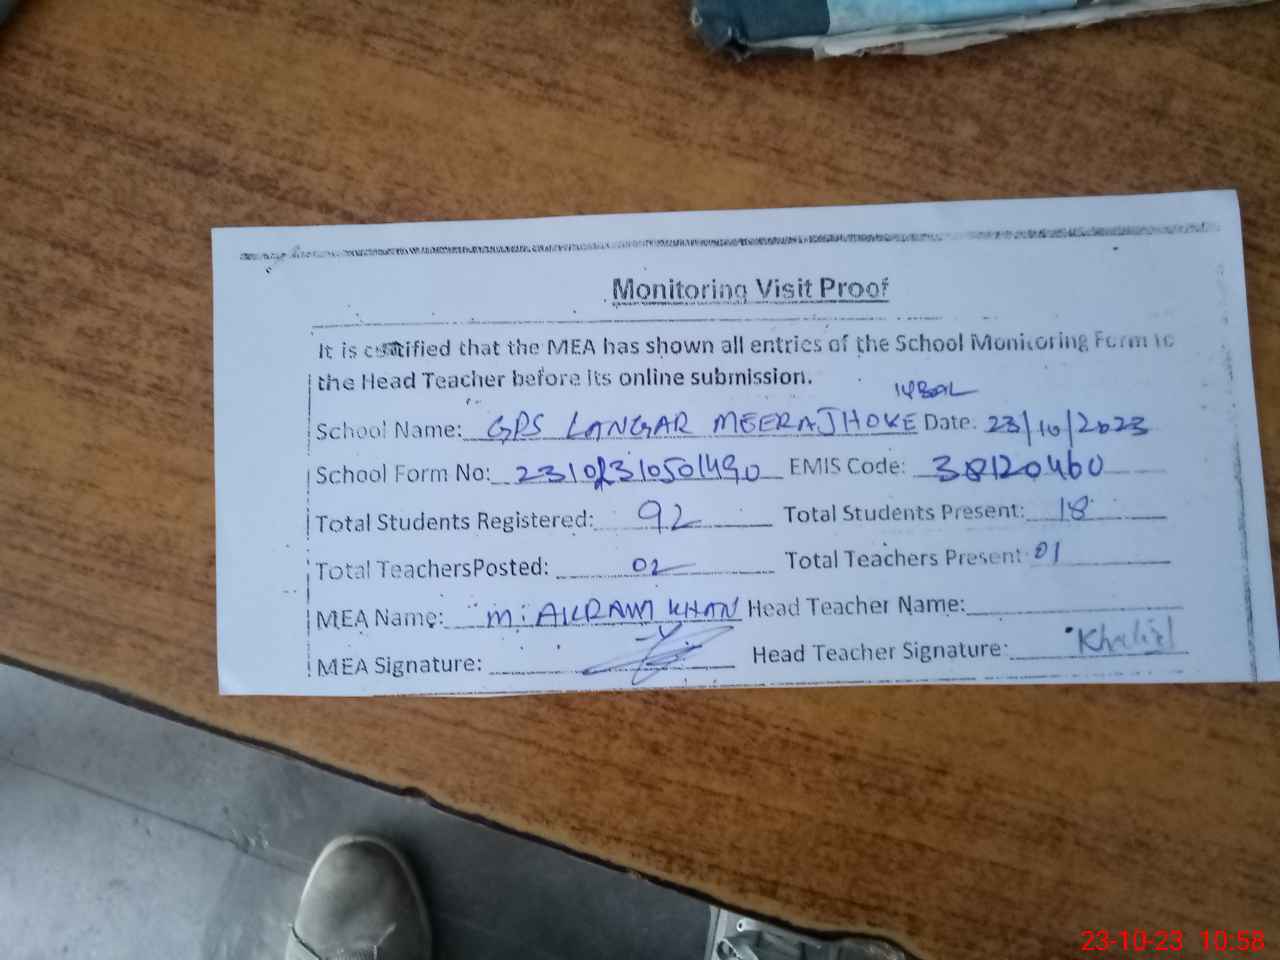 Monitoring Visit Proof
It is certified that the MEA has shown all entries of the School Monitoring Form to
the Head Teacher before its online submission.
IQBAL
School Name: GPS LANGAR MEERA JHOKE Date: 23/10/2023
School Form No: 23102310501490 EMIS Code: 38120460
Total Students Registered: 92 Total Students Present: 18
Total TeachersPosted: 02 Total Teachers Present: 01
MEA Name: M. AKRAM KHAN Head Teacher Name:
MEA Signature: Head Teacher Signature: Khalid
23-10-23 10:58